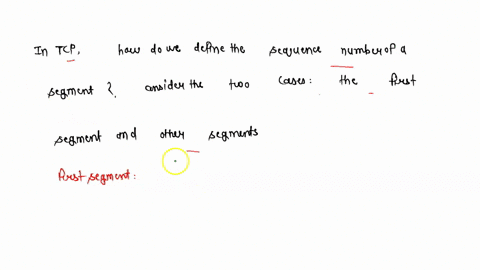 In TCP, how do we define the sequence number of a
segment ? consider the two cases: the first
segment and other segments
first segment: